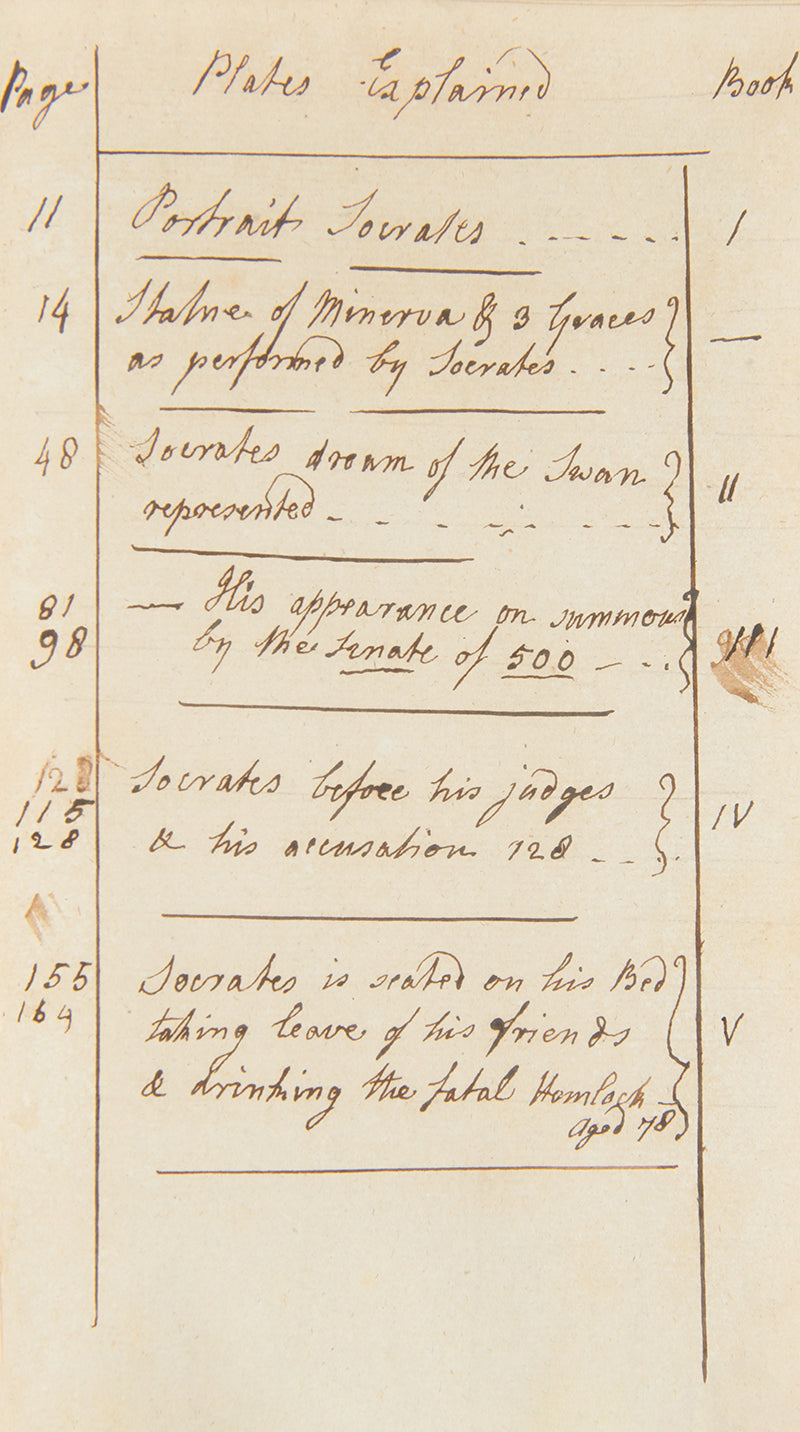 Page Plates Explained Book
11 Portrait Socrates . - - - - . I
14 Statue of Minerva & 3 Graces
as performed by Socrates . . . . —
48 Socrates dream of the Swan
represented - - - - - - - II
81 — His appearance on summons
98 by the Senate of 500 - - . . III
128
115 Socrates before his judges
128 & his accusation 128 - - . IV
155 Socrates is seated on his Bed
164 taking leave of his friends V
& drinking the fatal Hemlock -
Aged 78